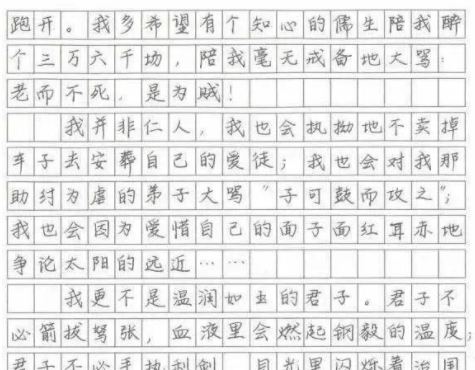 跑开。我多希望有个知心的儒生陪我醉
个三万六千场，陪我毫无戒备地大骂：
老而不死，是为贼！
我并非仁人，我也会执拗地不卖掉
车子去安葬自己的爱徒；我也会对我那
助纣为虐的弟子大骂“子可鼓而攻之”；
我也会因为爱惜自己的面子面红耳赤地
争论太阳的远近……
我更不是温润如玉的君子。君子不
必箭拔弩张，血液里会燃起钢毅的温度；
君子不必手执利剑，目光里闪烁着治国